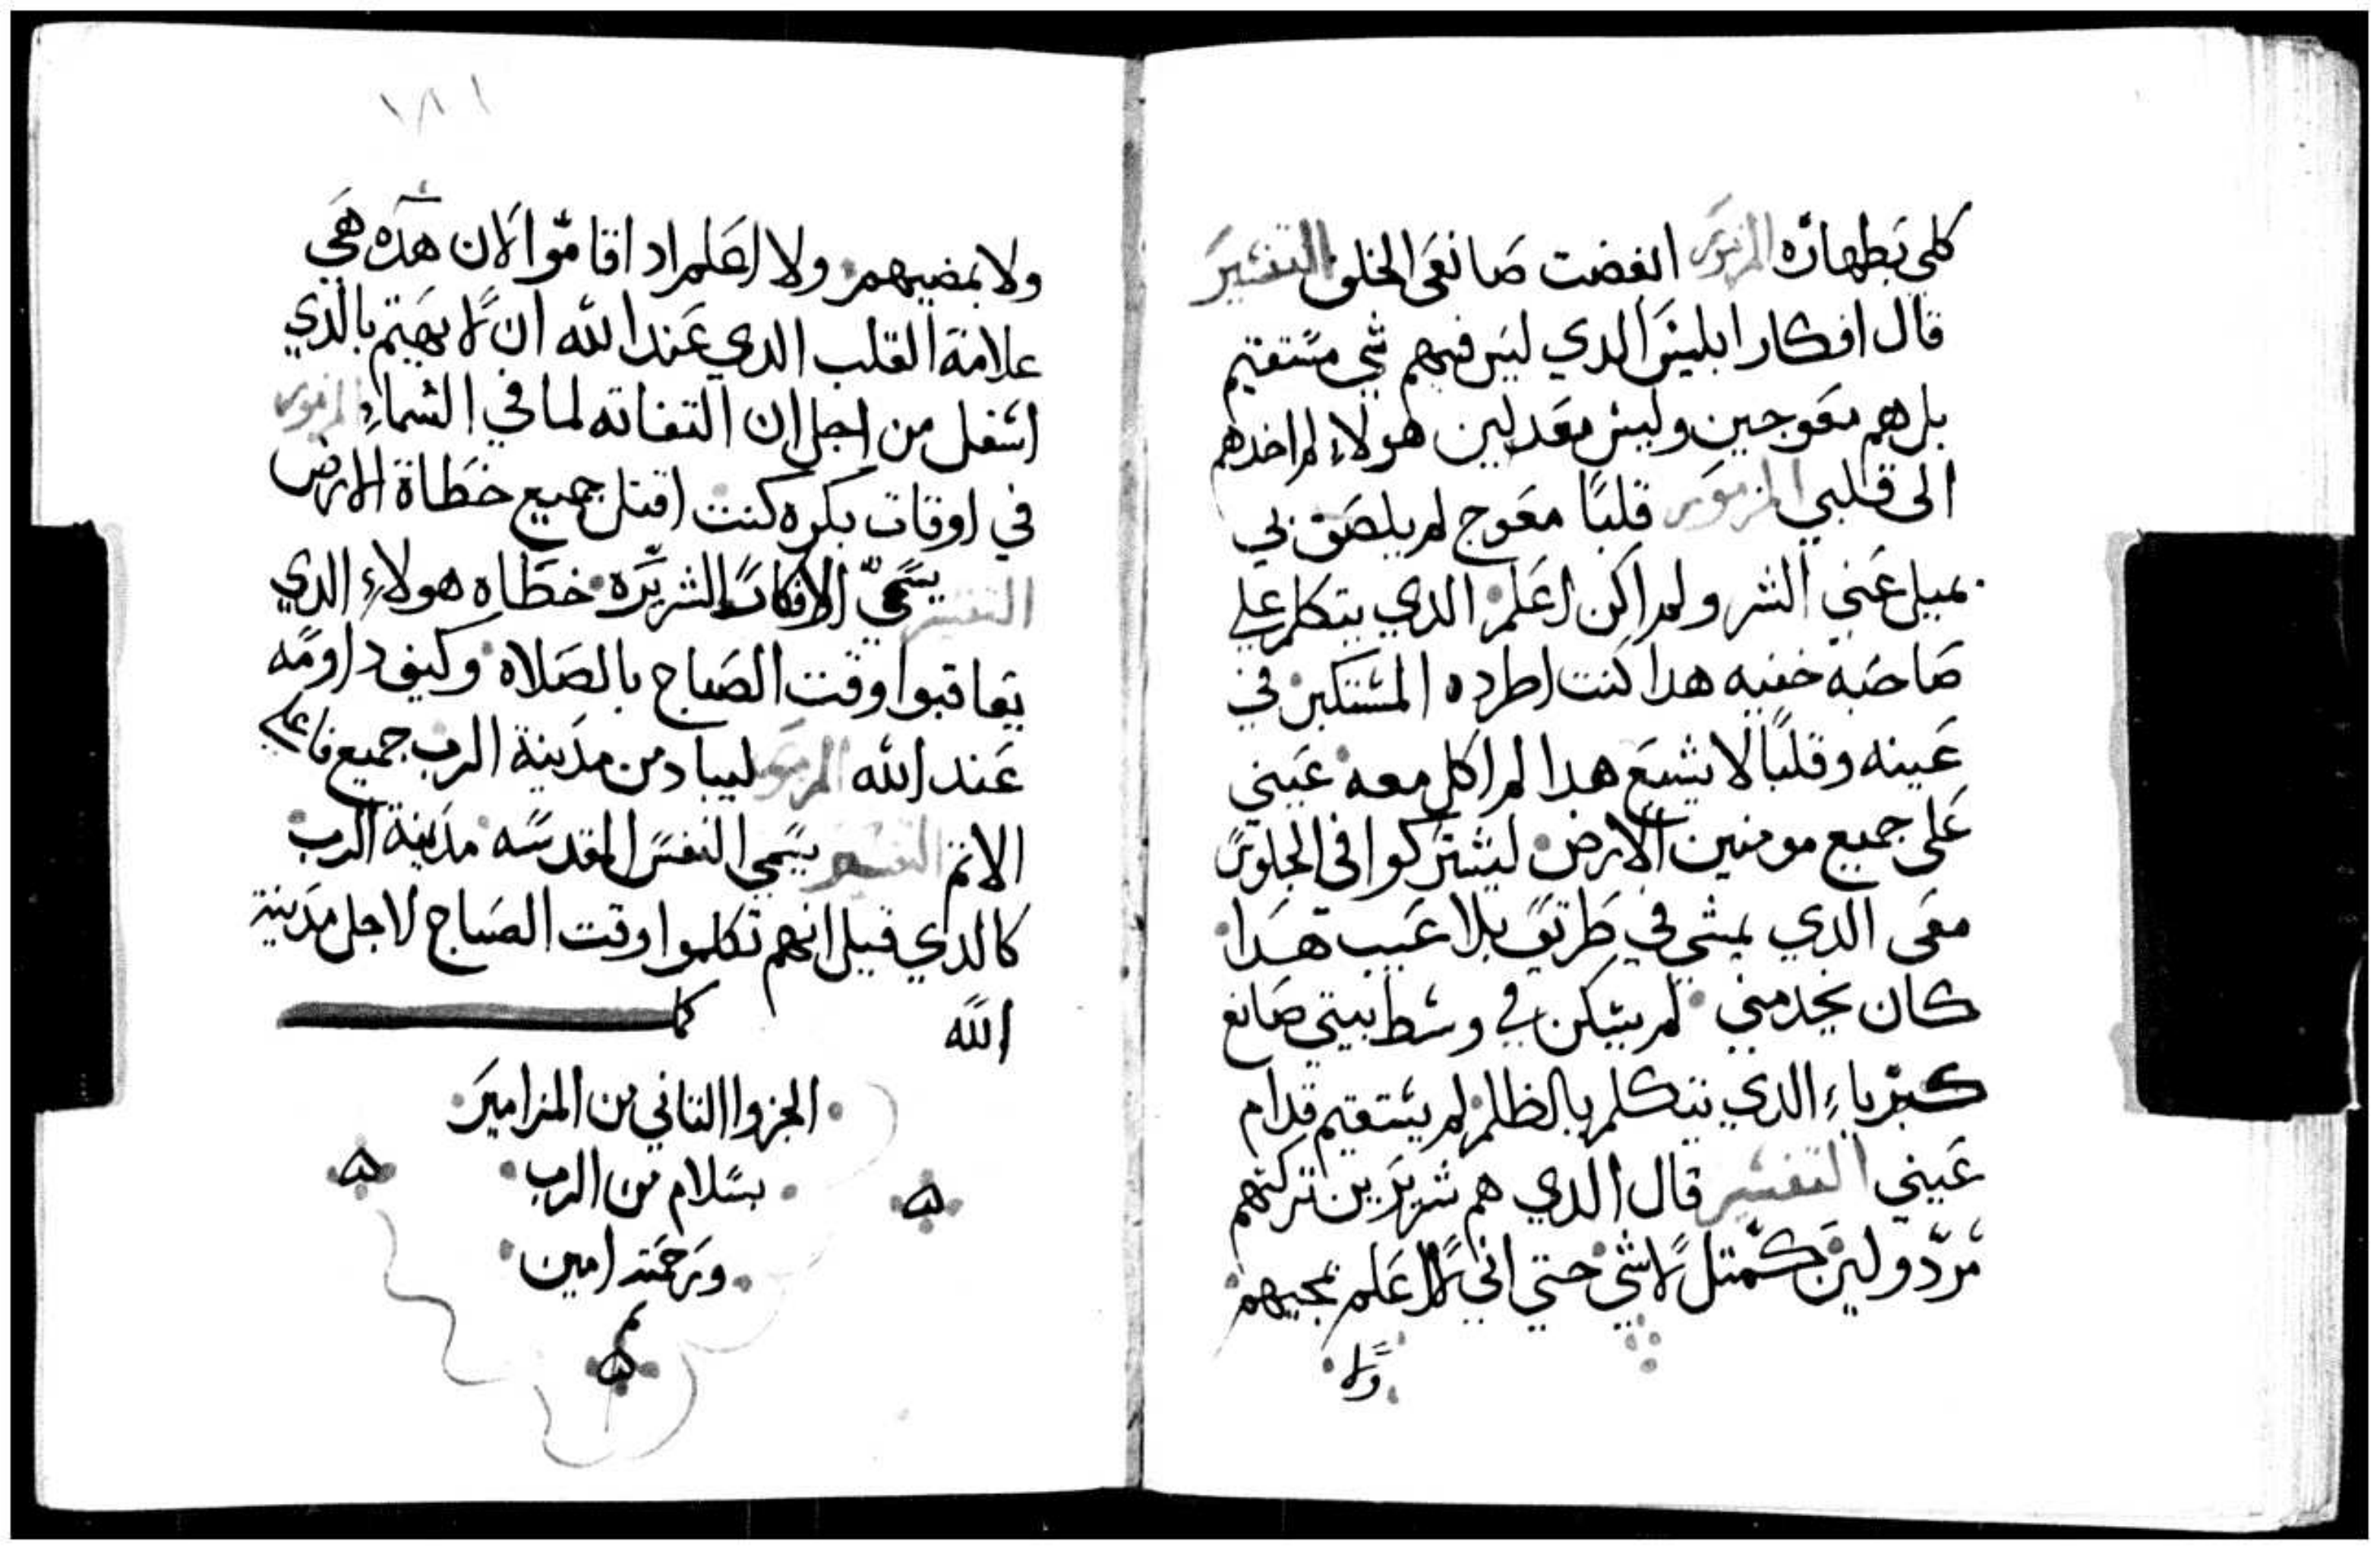 كلمي بطهاره المزمور ابغضت صانعى الخلف التفسير
قال افكار ابليس الدي ليس فيهم شي مستقيم
بل هم معوجين وليس معدلين هولاء لم اخدهم
الى قلبي المزمور قلبًا معوج لم يلصق بي
بميل عني الشر ولم اكن اعلم الدي يتكلم علي
صاحبه خفيه هدا كنت اطرده المستكبر في
عينه وقلبًا لا يشبع هدا لم اكل معه عيني
على جميع مومنين الارض ليشتركوا في الجلوس
معى الدي يمشي في طريق بلا عيب هدا
كان يخدمني لم يسكن في وسط بيتي صانع
كبرياء الدي يتكلم بالظلم لم يستقيم قدام
عيني التفسير قال الدي هم شريرين تركتهم
مردولين كمتل لا شي حتي اني لا اعلم بمجيهم
ولا
١٨١
ولا بمضيهم ولا اعلم اد اقاموا الان هده هي
علامة القلب الدي عند الله ان لا يهتم بالدي
اسفل من اجل ان التفاته لما في السماء المزمور
في اوقات بكره كنت اقتل جميع خطاة الارض
التفسير يسمي الافكار الشريره خطاه هولاء الدي
يعاقبوا وقت الصباح بالصلاه وكيف داومه
عند الله المزمور ليباد من مدينة الرب جميع فاعلي
الاتم التفسير يسمي النفس المقدسه مدينة الرب
كالدي قيل انهم تكلموا وقت الصباح لاجل مدينة
الله كا
الجزوا التاني من المزامير
بسلام من الرب
ورحمته امين